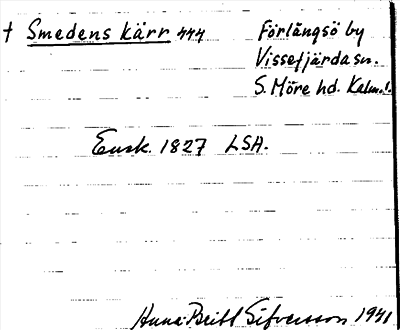 † Smedens kärr 444
Förlångsö by
Vissefjärda sn.
S. Möre hd. Kalm. l.
Ensk. 1827 LSA.
Anna-Britt Sifversson 1941